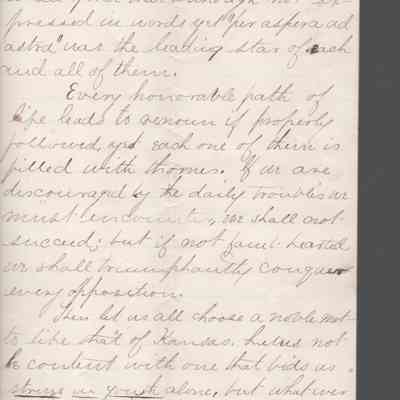 pressed in words yet "per aspera ad
astra" was the leading star of each
and all of them.
Every honorable path of
life leads to renown if properly
followed, yet each one of them is
filled with thornes. If we are
discouraged by the daily troubles we
must encounter, we shall not
succeed; but if not faint-hearted
we shall triumphantly conquer
every opposition.
Then let us all choose a noble mot-
to like that of Kansas. Let us not
be content with one that bids us
strive in youth alone, but whatever